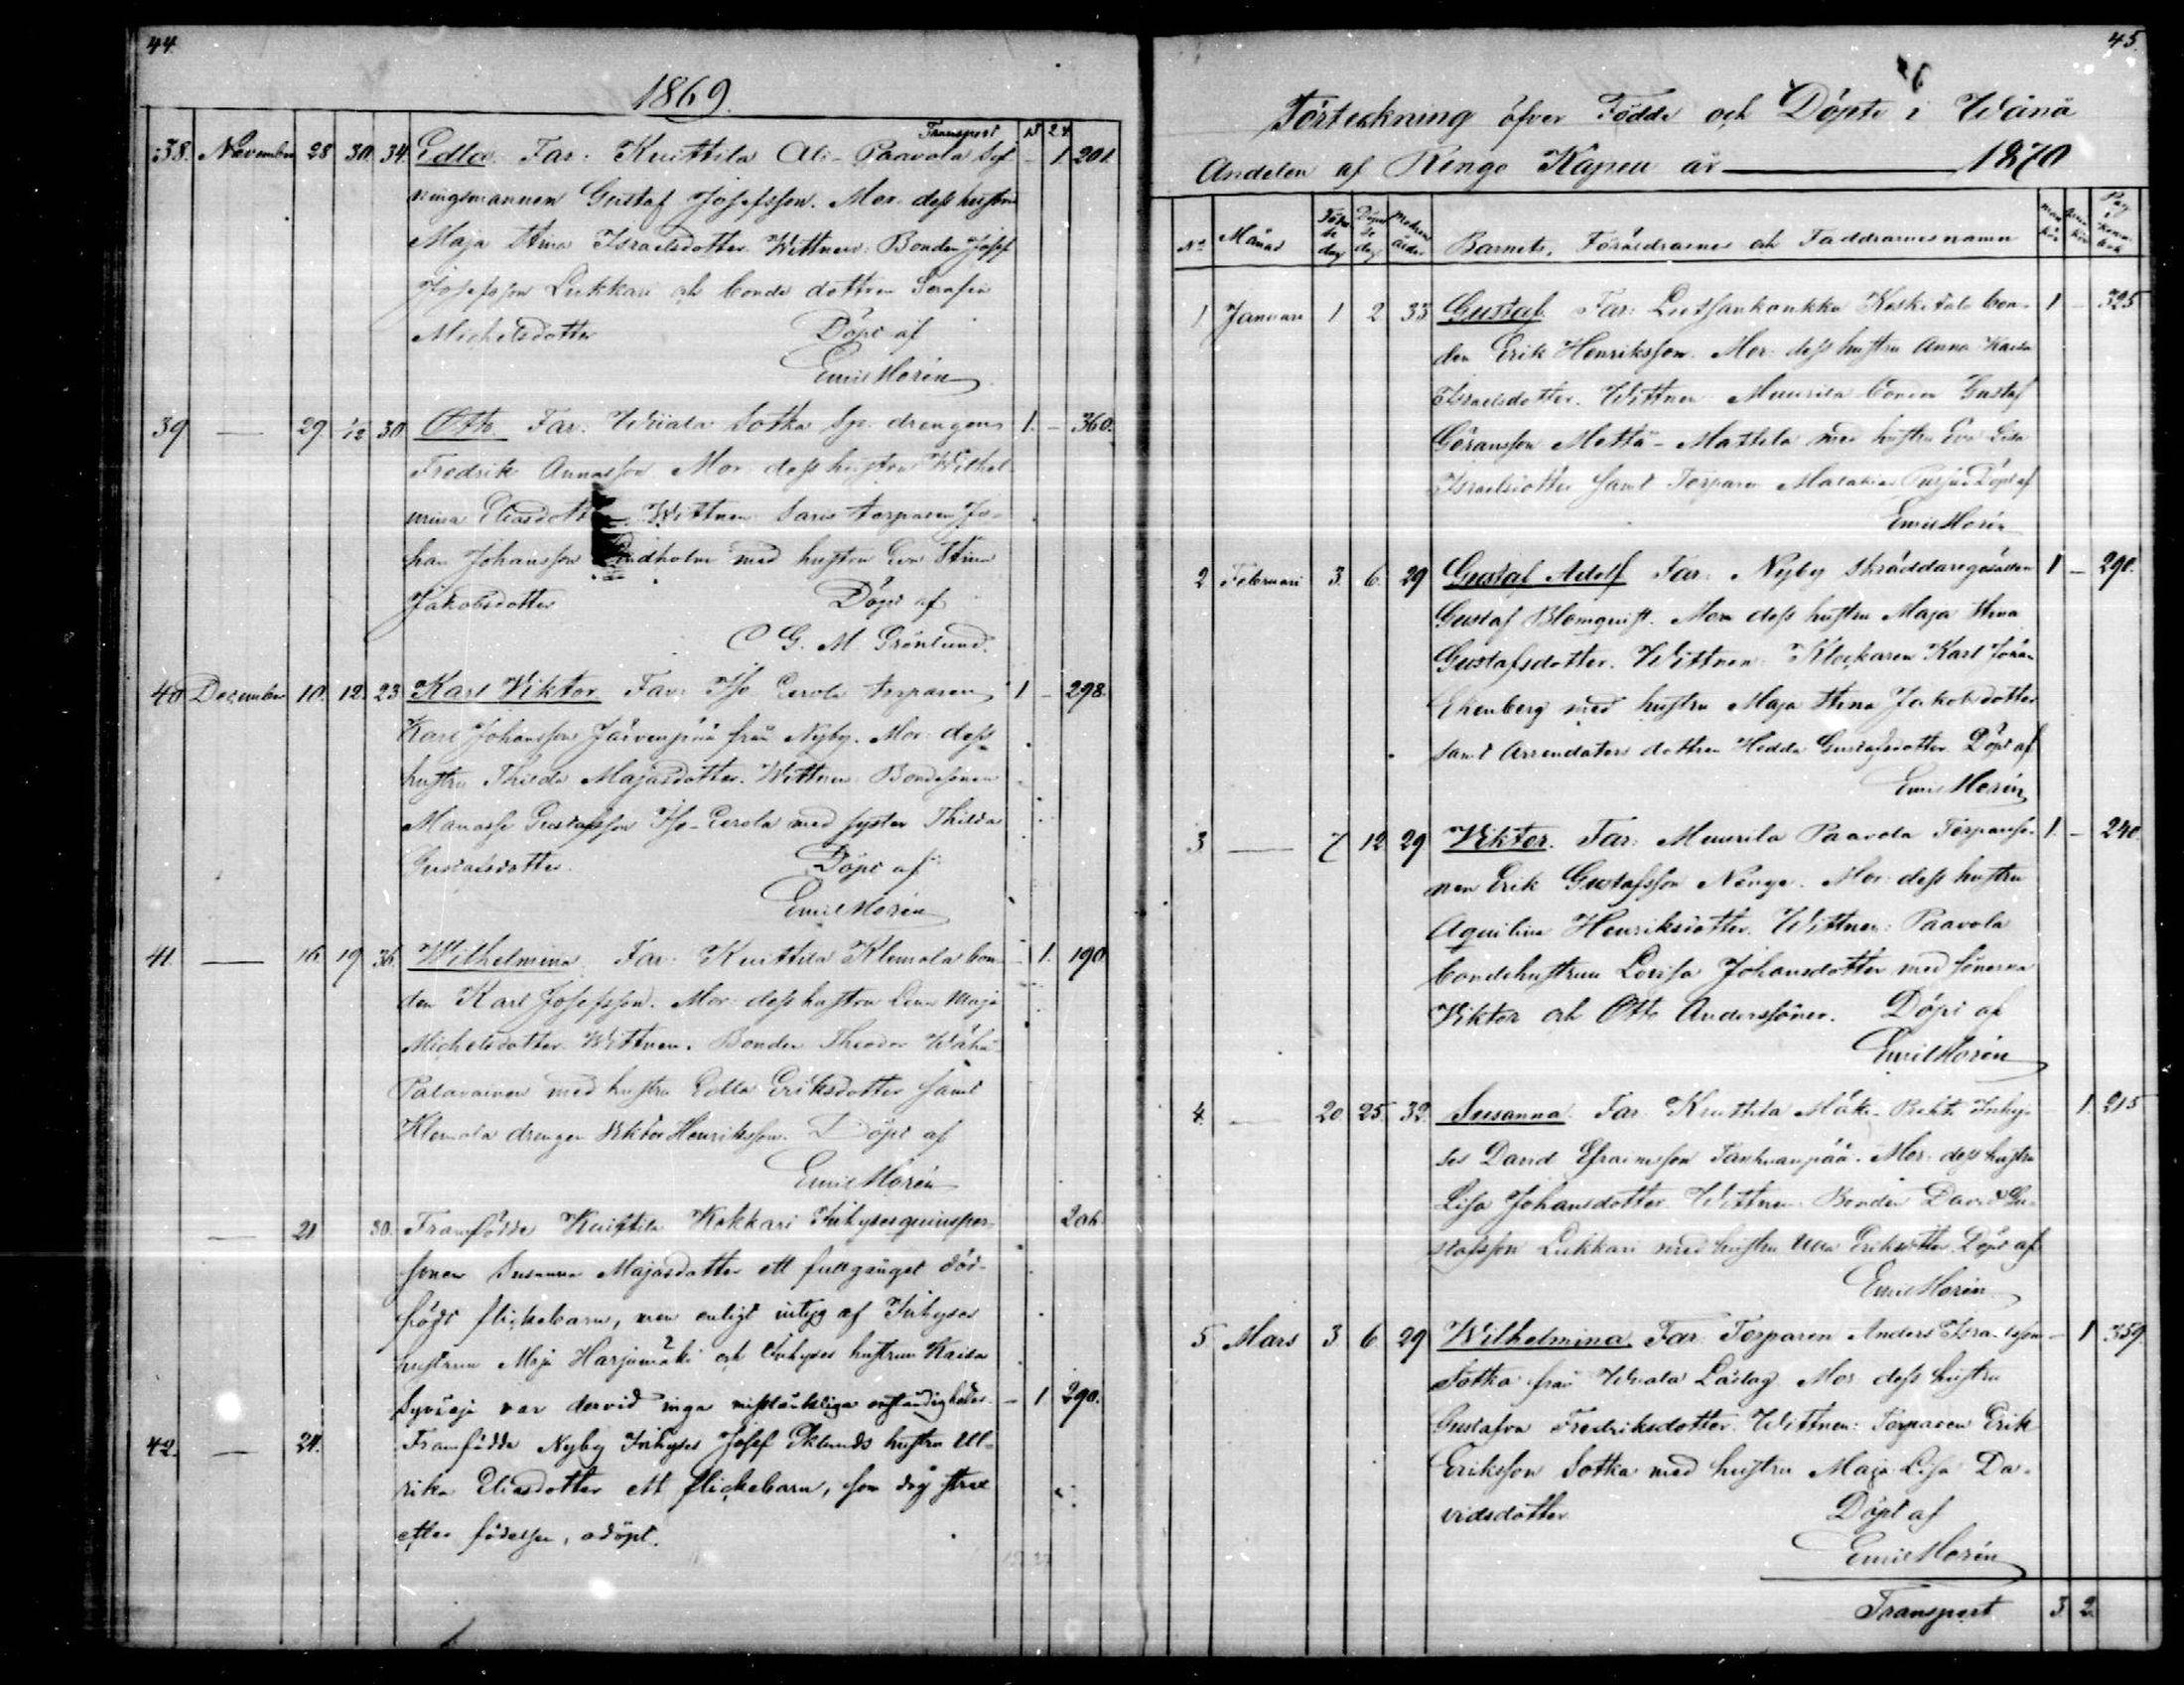 44.
1869.
Transport 15 24
38. November 28 30. 34. Edla. Far: Kuittila Ali-Paavola Syt- - 1 201.
ningsmannen Gustaf Josefsson. Mor: dess hustru
Maja Stina Israelsdotter. Wittnen: Bonden Josef
Josefsson Lukkari och bonde dottren Serafia
Michelsdotter Döpt af
Emil Horén
39 — 29 1/12 30 Otto. Far: Wiiala Sotka Sp. drengen 1. - 360.
Fredrik Annasson Mor: dess hustru Wilhel-
mina Eliasdotter Wittnen: Saris torparen Jo-
han Johansson Lindholm med hustru Eva Stina
Jakobsdotter Döpt af
C. G. M. Grönlund.
40 December 10. 12. 23. Karl Viktor. Far: Iso Eerola torparen 1 - 298.
Karl Johansson Järvenpää från Nyby. Mor: dess
hustru Thilda Majasdotter. Wittnen: Bondesonen
Manasse Gustafsson Iso-Eerola med syster Thilda
Gustafsdotter. Döpt af
Emil Horén
41. — 16 19 36. Wilhelmina Far: Kuittila Klemola bon- - 1. 190
den Karl Josefsson. Mor: dess hustru Lena Maja
Michelsdotter. Wittnen: Bonden Theodor Wähä-
Palavainen med hustru Edla Eriksdotter samt
Klemola drengen Viktor Henriksson. Döpt af
Emil Horén
— 21 30. Framfödde Kuittila Kokkari Inhyses qvinsper- 206.
sonen Susanna Majasdotter ett fullgånget död-
född flickebarn, men enligt intyg af Inhyses
hustrun Maja Harjumäki och Inhyses hustrun Kaisa
Syväoja var dervid inga misstänkliga omständigheter. - 1 290.
42. — 24. Framfödde Nyby Inhyses Josef Eklunds hustru Ul-
rika Eliasdotter ett flickebarn, som dog strax
efter födelsen, odöpt.
45.
Förteckning öfver Födde och Döpte i Wånå
Andelen af Rengo Kapell år 1870
No Månad Födelse dag Döpelse dag Modrens ålder Barnets, Föräldrarnes och Faddrarnes namn man kön qvin kön Pag i Komm. bok
1 Januari 1 2 33 Gustaf. Far: Luthankankka Keskitalo bon- 1 - 325
den Erik Henriksson. Mor: dess hustru Anna Kaisa
Israelsdotter. Wittnen: Muurila bonden Gustaf
Göransson Mettä-Mattila med hustru Eva Lisa
Israelsdotter samt Torparen Malakias Döpt af
Emil Horén
2 Februari 3. 6. 29 Gustaf Adolf Far: Nyby Skräddaregesällen 1 - 290.
Gustaf Blomqvist. Mor: dess hustru Maja Stina
Gustafsdotter. Wittnen: Klockaren Karl Johan
Ekenberg med hustru Maja Stina Jakobsdotter
samt Arrendators dottren Hedda Gustafsdotter Döpt af
Emil Horén
3 — 7 12 29 Viktor. Far: Muurila Paavola Torpareso- 1. - 240
nen Erik Gustafsson Nenge. Mor: dess hustru
Aqvilina Henriksdotter. Wittnen: Paavola
bondehustrun Lovisa Johansdotter med sönerna
Viktor och Otto Anderssöner. Döpt af
Emil Horén
4. — 20. 25. 32. Susanna. Far: Kuittila Mäki-Prehti Inhy- 1. 215
ses David Efraimsson Tanhuanpää. Mor: dess hustru
Lisa Johansdotter. Wittnen: Bonden David Gu-
stafsson Lukkari med hustru Ulla Eriksdotter. Döpt af
Emil Horén
5 Mars 3 6 29 Wilhelmina. Far: Torparen Anders Israelsson - 1 359.
Sotka från Wiiala Låslag. Mor: dess hustru
Gustafva Fredriksdotter. Wittnen: Torparen Erik
Eriksson Sotka med hustru Maja Lisa Da-
vidsdotter Döpt af
Emil Horén
Transport 3 2